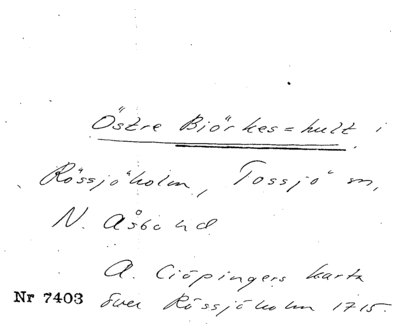 Östre Biörkes=hult i
Rössjöholm, Tossjö sn,
N. Åsbo hd
A. Ciöpingers karta
Nr 7403 över Rössjöholm 1715.